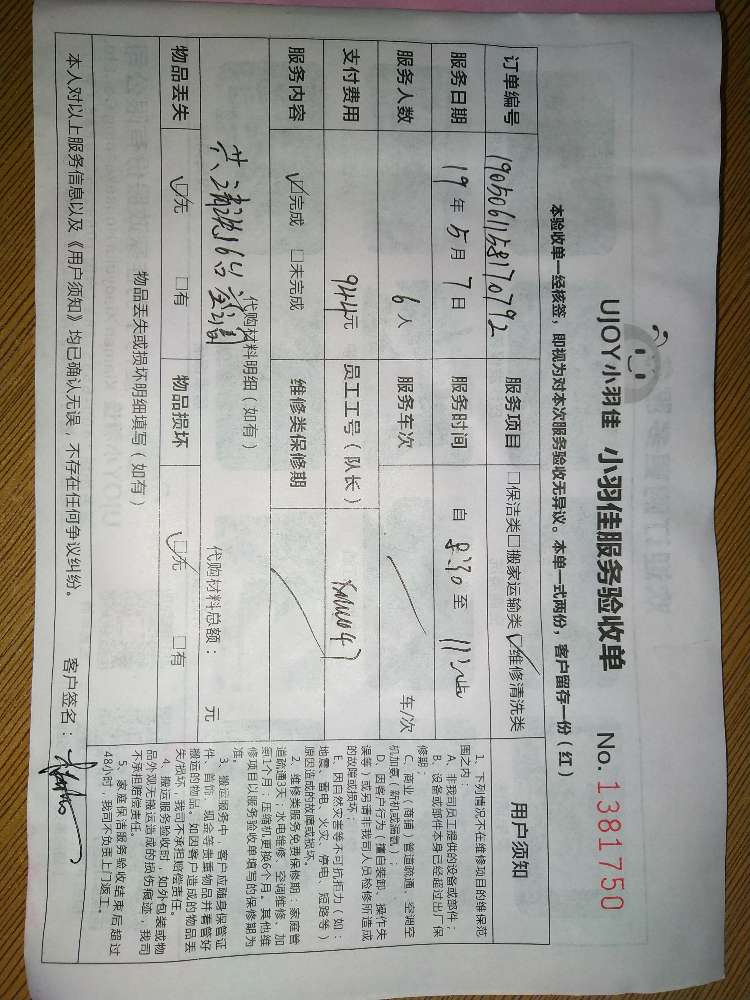 UJOY小羽佳 小羽佳服务验收单 No. 1381750
本验收单一经核签，即视为对本次服务验收无异议。本单一式两份，客户留存一份（红）
订单编号 1905061158170792 服务项目 □保洁类□搬家运输类☑维修清洗类
服务日期 19年5月7日 服务时间 自 8:30 至
服务人数 6人 服务车次 车/次
支付费用 944元 员工工号（队长）
服务内容 ☑完成 □未完成 维修类保修期
代购材料明细（如有）
共清洗16台空调
代购材料总额： 元
物品丢失 ☑无 □有 物品损坏 ☑无 □有
物品丢失或损坏明细填写（如有）
本人对以上服务信息以及《用户须知》均已确认无误，不存在任何争议纠纷。 客户签名：
用户须知
1、下列情况不在维修项目的维保范
围之内：
A、非我司员工提供的设备或部件；
B、设备或部件本身已经超过出厂保
修期；
C、商业（商铺）管道疏通、空调空
机加氨（新机或漏氨）；
D、因客户行为（擅自装卸、操作失
误等）或另请非我司人员检修所造成
的故障或损坏。
E、因自然灾害等不可抗拒力（如：
地震、雷电、火灾、停电、短路等）
原因造成的故障或损坏。
2、维修类服务免费保修期：家庭管
道疏通3天，水电维修、空调维修、加
氨1个月，压缩机更换6个月。其他维
修项目以服务验收单填写的保修期为
准。
3、搬运服务中，客户应随身保管证
件、首饰、现金等贵重物品并看管好
搬运的物品。如因客户造成的物品丢
失/损坏，我司不承担赔偿责任。
4、搬运服务验收时，如外包装或物
品外观无搬运造成的损伤痕迹，我司
不承担赔偿责任。
5、家庭保洁服务验收结束后超过
48小时，我司不负责上门返工。